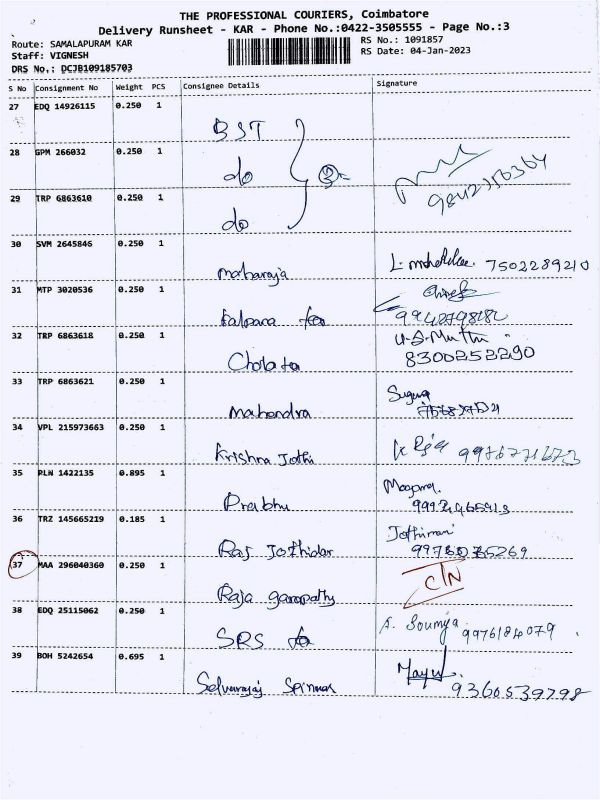 THE PROFESSIONAL COURIERS, Coimbatore
Delivery Runsheet - KAR - Phone No.:0422-3505555 - Page No.:3
Route: SAMALAPURAM KAR RS No.: 1091857
Staff: VIGNESH RS Date: 04-Jan-2023
DRS No.: DCJB109185703
S No Consignment No Weight PCS Consignee Details Signature
27 EDQ 14926115 0.250 1
BST
28 GPM 266032 0.250 1
do
29 TRP 6863610 0.250 1
do
30 SVM 2645846 0.250 1
maharaja 7502289210
31 MTP 3020536 0.250 1
Kalpana
32 TRP 6863618 0.250 1
Chola 8300252290
33 TRP 6863621 0.250 1
Mahendra
34 VPL 215973663 0.250 1
Krishna Jothi
35 PLN 1422135 0.895 1
Prabhu
36 TRZ 145665219 0.185 1
Raj Jothidar
37 MAA 296040360 0.250 1
Raja ganapathy C/N
38 EDQ 25115062 0.250 1
SRS A. Soumya 9976184079
39 BOH 5242654 0.695 1
Selvarajaj 9360539798